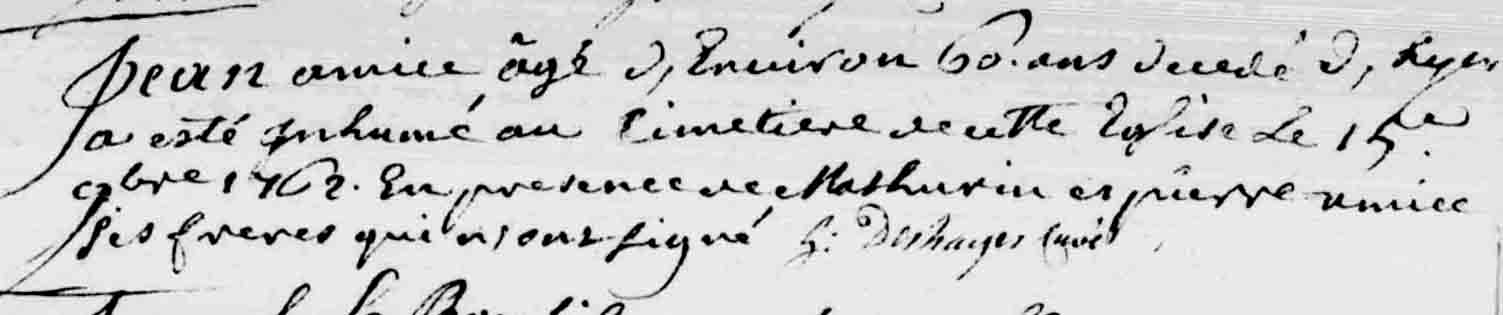 Jean amice âgé d, Environ 60. ans decedé d, hyer
a esté Inhumé au Cimetiere de cette Eglise Le 15e
9bre 1762. En presence de Mathurin et pierre amice
ses freres qui n, ont signé G: Deshayes Curé